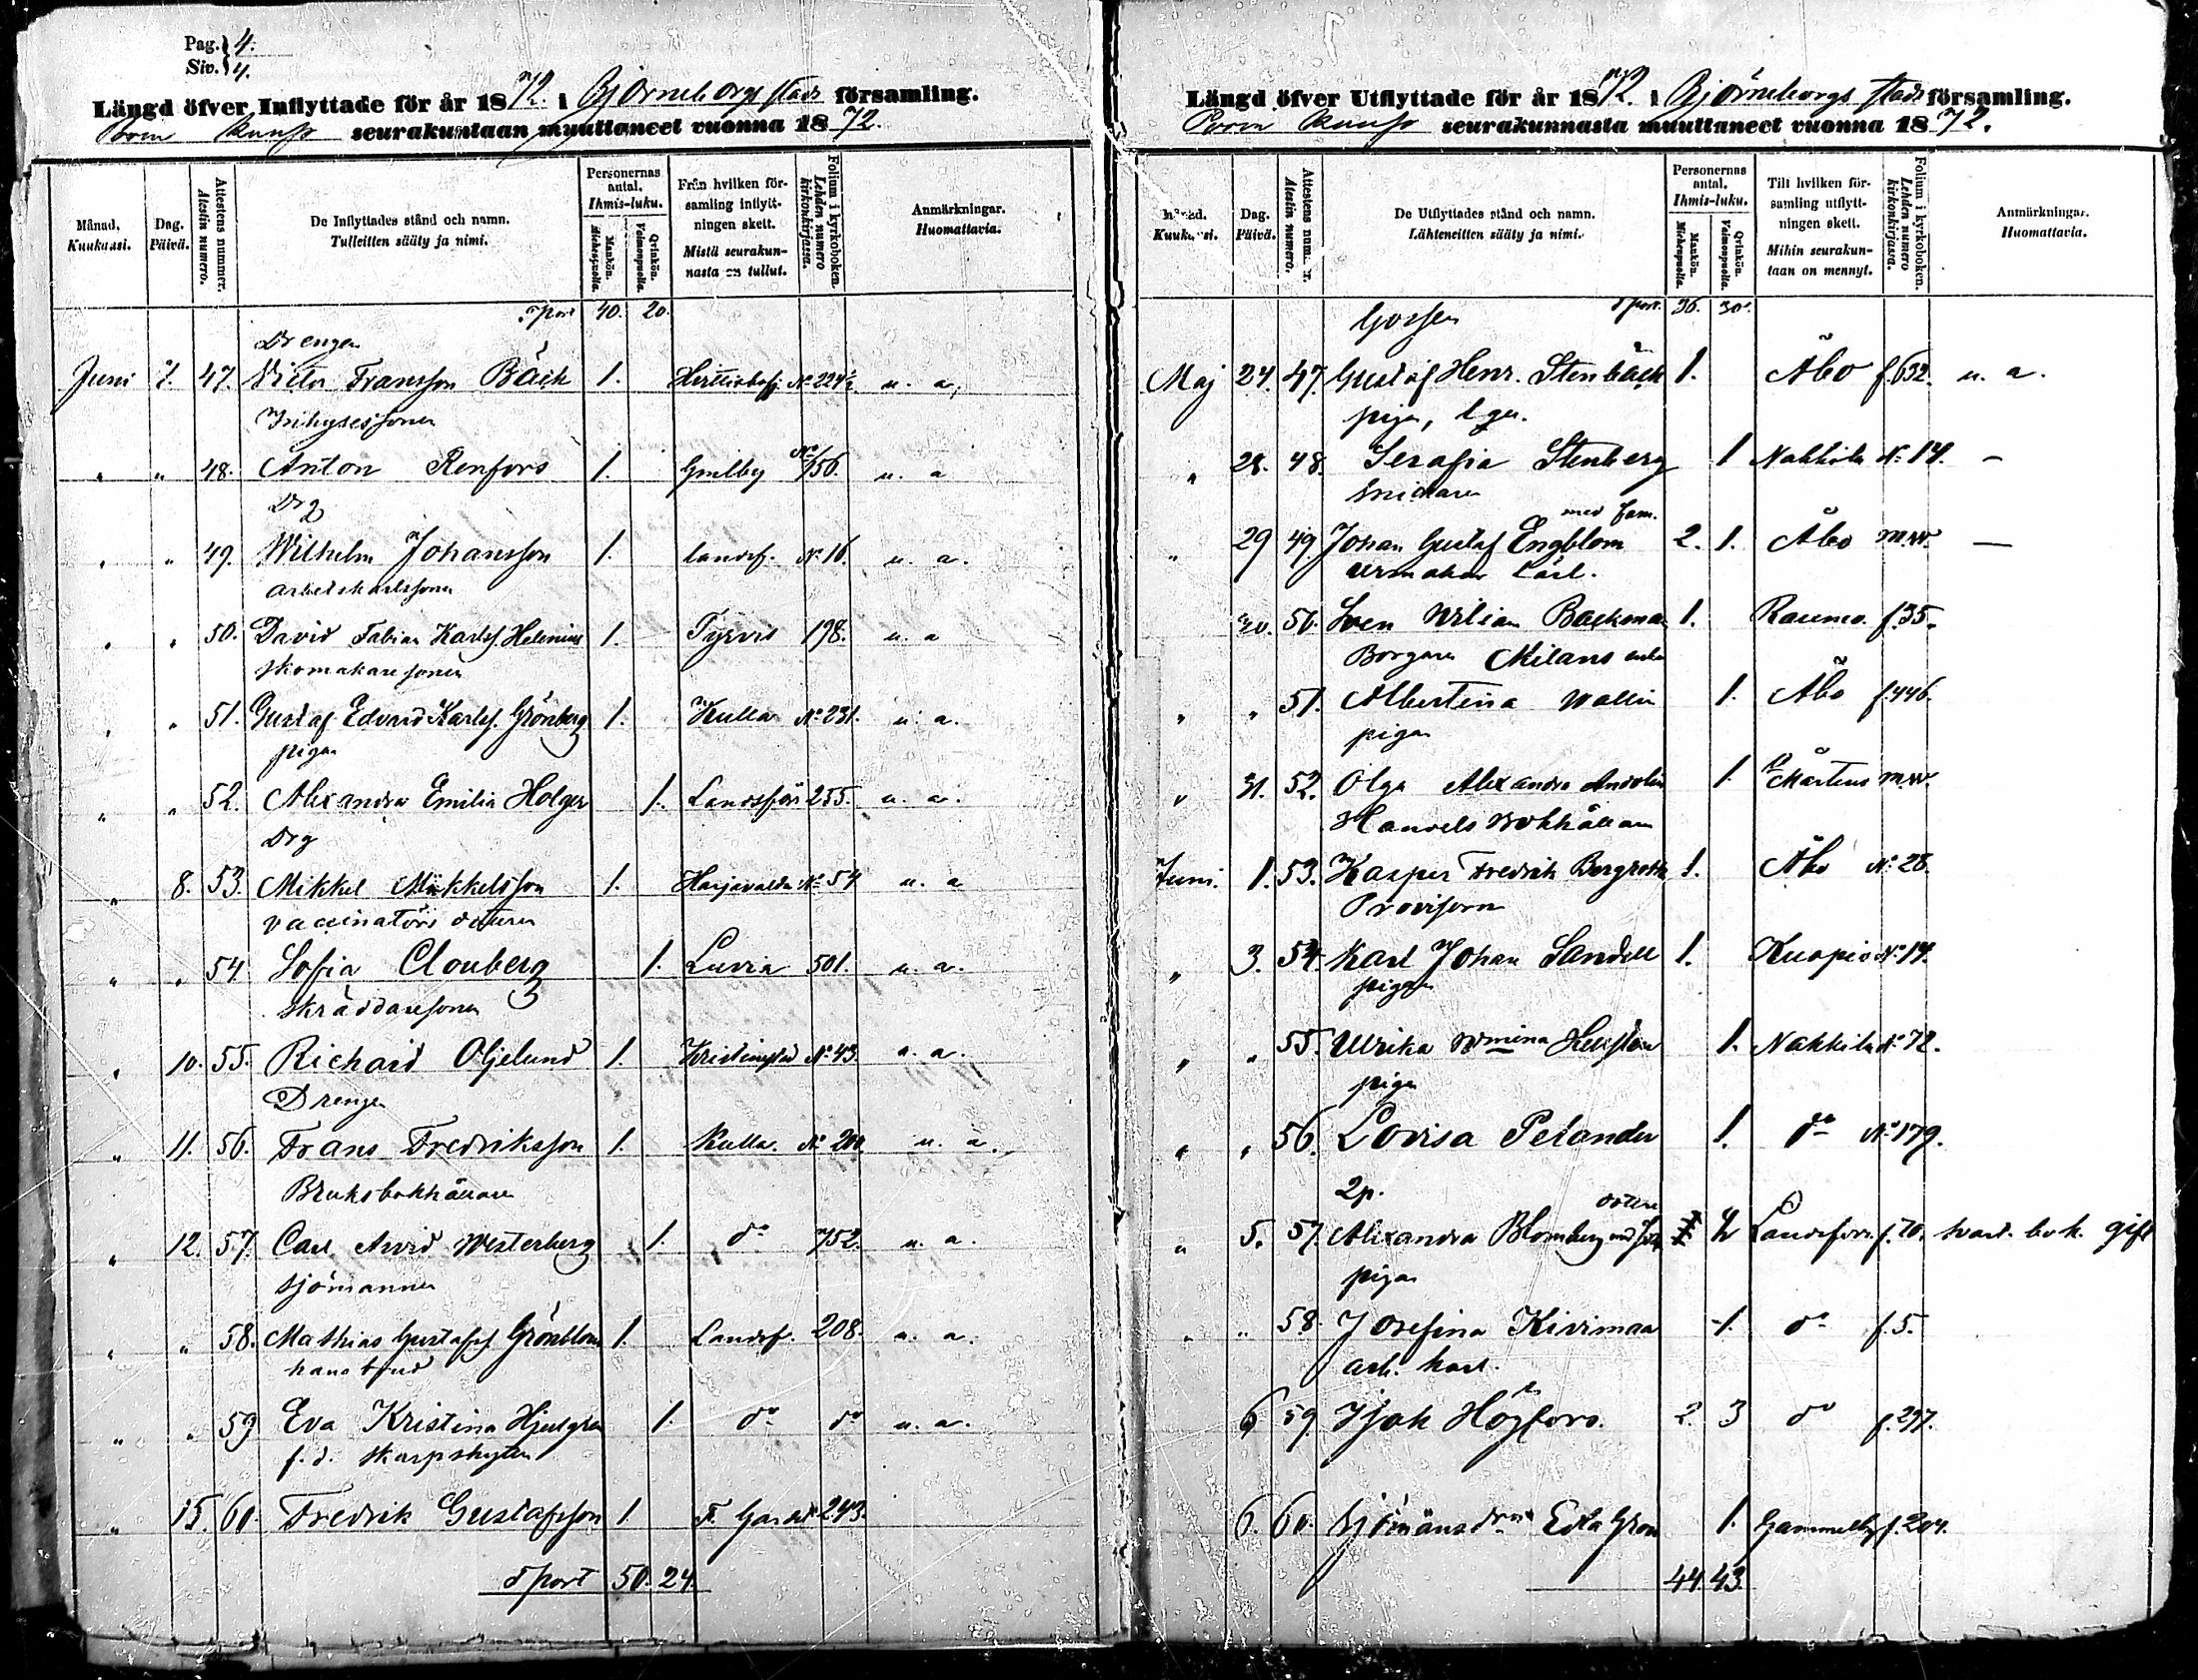 Pag. 4.
Siv. 4.
Längd öfver Inflyttade för år 1872. i Björneborgs stads församling.
Porin kaup. seurakuntaan muuttaneet vuonna 1872.
Månad. Kuukausi.
Dag. Päivä.
Attestens nummer. Atestin numero.
De Inflyttades stånd och namn. Tulleitten sääty ja nimi.
Personernas antal. Ihmis-luku.
Mankön. Miehenpuolia.
Qvinkön. Vaimonpuolia.
Från hvilken församling inflyttningen skett. Mistä seurakunnasta on tullut.
Folium i kyrkoboken. Lehden numero kirkonkirjassa.
Anmärkningar. Huomattavia.
Tport 40. 20.
Drengen
Juni 7. 47. Victor Fransson Bäck 1. N:o 224½ u. a.
Inhysessonen
" " 48. Anton Renfors 1. N:o 156. u. a
Drg
" " 49. Wilhelm Johansson 1. landsf. N:o 16. u. a.
arbetskarlssonen
" " 50. David Fabian Karlsf. Helenius 1. Tyrvis 198. u. a
skomakaresonen
" " 51. Gustaf Edvard Karlsf. Grönberg 1. Kulla N:o 231. u. a.
pigan
" " 52. Alexandra Emilia Holger 1. Landsför 255. u. a.
Drg
" 8. 53. Mikkel Mikkelsson 1. Harjavalda N:o 54 u. a
vaccinatörs dottren
" " 54 Sofia Clouberg 1. Luvia 501. u. a.
skräddaresonen
" 10. 55. Richard Oljelund 1. Kristinestad N:o 43. u. a.
Drengen
" 11. 56. Frans Fredriksson 1. Kulla. N:o 200. u. a.
Bruksbokhållaren
" 12. 57. Carl Arvid Westerberg 1. d:o 752. u. a.
sjömannen
" " 58. Mathias Gustafsf. Grönblom 1. Landsf. 208. u. a.
hans brud
" " 59 Eva Kristina 1. d:o d:o u. a.
f. d. skarpskytten
" 15. 60. Fredrik Gustafsson 1 F. 243.
Tport 50. 24.
Längd öfver Utflyttade för år 1872. i Björneborgs stads församling.
Porin kaup. seurakunnasta muuttaneet vuonna 1872.
Månad. Kuukausi.
Dag. Päivä.
Attestens nummer. Atestin numero.
De Utflyttades stånd och namn. Lähteneitten sääty ja nimi.
Personernas antal. Ihmis-luku.
Mankön. Miehenpuolia.
Qvinkön. Vaimonpuolia.
Till hvilken församling utflyttningen skett. Mihin seurakuntaan on mennyt.
Folium i kyrkoboken. Lehden numero kirkonkirjassa.
Anmärkningar. Huomattavia.
Gossen Tport. 36. 30.
Maj 24. 47. Gustaf Henr. Stenbäck 1. Åbo f. 632. u. a.
pigan,
" 28. 48. Serafia Stenberg 1 Nakkila N:o 14. —
snickaren med fam.
" 29 49 Johan Gustaf Engblom 2. 1. Åbo —
urmakar lärl.
" 30. 50. Sven Wilian Backman 1. Raumo f. 35.
Borgaren Milans enka
" " 51. Albertina Wallin 1. Åbo f. 446.
pigan
" 31. 52. Olga Alexandra Andolin 1. S:t Mårtens
Handels Bokhållaren
Juni. 1. 53. Kasper Fredrik Bergroth 1. Åbo N:o 28.
Provisorn
" 3. 54. Karl Johan Sandell 1. Kuopio N:o 14.
pigan
" " 55. Ulrika Wmina 1. Nakkila N:o 72.
pigan
" " 56. Lovisa Pelander 1. d:o N:o 179.
2p. dotter
" 5. 57. Alexandra Blomberg med 2 Landsförs. f. 70. gift
pigan
" " 58. Josefina Kivimaa 1. d:o f. 5.
arb. karl.
6 59 Isak Högfors. 2. 3 d:o f. 297.
6. 60. Edla Grön 1. Gammelby f. 204.
44. 43.